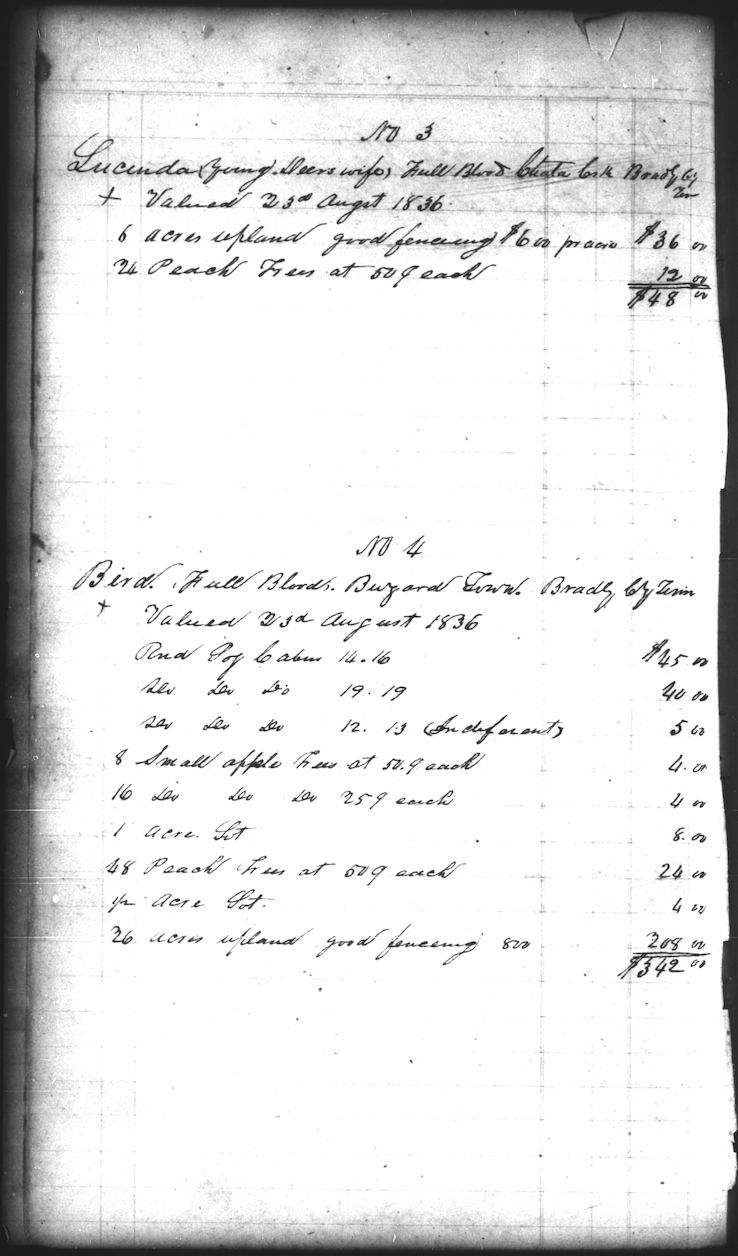 No 3
Lucinda (Young Deers wife) Full Blood Chata Crk Bradly Cy
Ten
+ Valued 23rd Augst 1836
6 acres upland good fenceing $6 00 pr acre $36 00
24 Peach Trees at 50¢ each 12 00
$48 00
No 4
Bird. Full Blood. Buzard Town. Bradly Cty Tenn
+ Valued 23d August 1836
Rnd Log Cabin 14.16 $45 00
Do Do Do 19.19 40 00
Do Do Do 12.13 (Indeferent) 5 00
8 Small apple Trees at 50.¢ each 4.00
16 Do Do Do 25¢ each 4 00
1 acre Lot 8.00
48 Peach Trees at 50¢ each 24 00
½ acre Lot. 4 00
26 acres upland good fenceing 800 208 00
$342 00